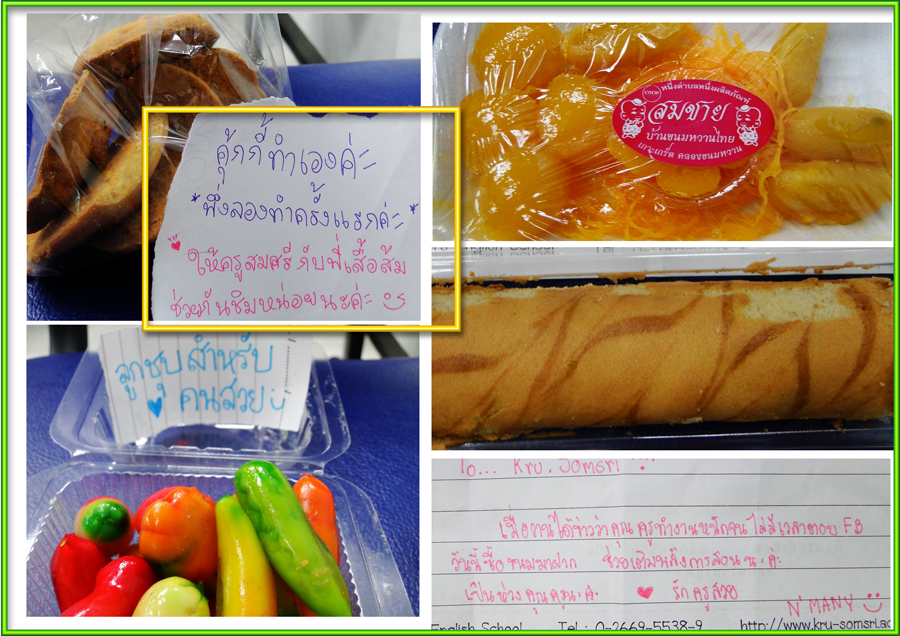 คุ้กกี้ทำเองค่ะ
*พึ่งลองทำครั้งแรกค่ะ*
ให้ครูสมศรี กับพี่เสื้อส้ม
ช่วยกันชิมหน่อยนะค่ะ
OTOP หนึ่งตำบลหนึ่งผลิตภัณฑ์
สมชาย
บ้านขนมหวานไทย
เกาะเกร็ด คลองขนมหวาน
English School
ลูกชุบสำหรับ
คนสวย
To... Kru. Somsri
เมื่อวานได้ข่าวว่าคุณครูทำงานหนักจนไม่มีเวลาตอบ FB
วันนี้ซื้อขนมมาฝาก ช่วยเติมพลังการสอน น.ค.
เป็นห่วงคุณครูน.ค. รักครูสวย
N'MANY
English School Tel : 0-2669-5538-9 http://www.kru-somsri.ac